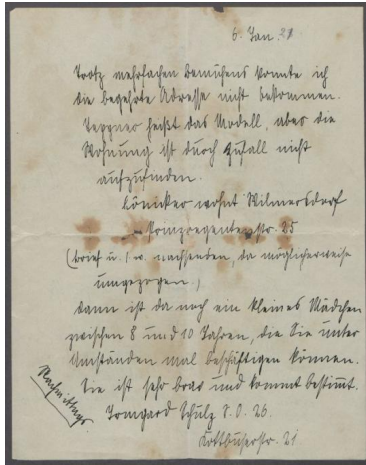 6. Jan. 21
Trotz mehrfachen Bemühens konnte ich
die begehrte Adresse nicht bekommen.
heißt das Modell, aber die
Wohnung ist durch Zufall nicht
aufzufinden.
wohnt Wilmersdorf
Prinzregentenstr. 25
(Brief u. nachsenden, da möglicherweise
umgezogen.)
Dann ist da noch ein kleines Mädchen
zwischen 8 und 10 Jahren, die Sie unter
Umständen mal beschäftigen können.
Sie ist sehr brav und kommt bestimmt.
Nachmittags
Irmgard Schulz S.O. 26.
Kottbuserstr. 21